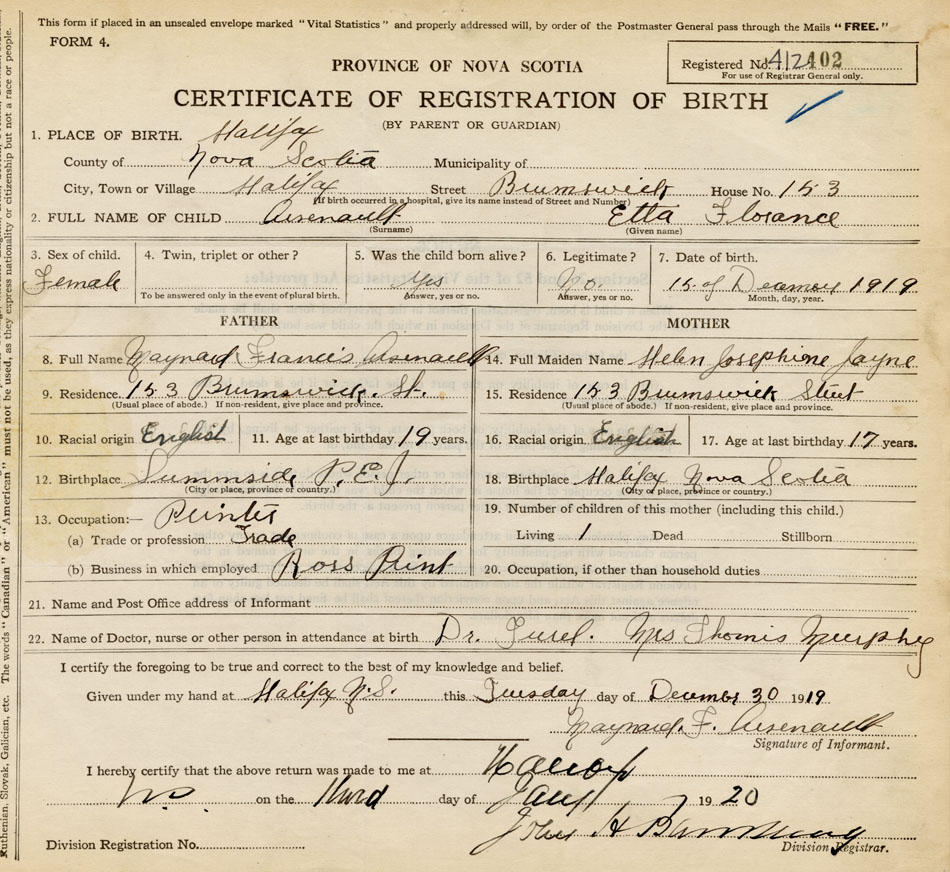 This form if placed in an unsealed envelope marked "Vital Statistics" and properly addressed will, by order of the Postmaster General pass through the Mails "FREE."
FORM 4.
Registered No. 412402
For use of Registrar General only.
PROVINCE OF NOVA SCOTIA
CERTIFICATE OF REGISTRATION OF BIRTH
(BY PARENT OR GUARDIAN)
1. PLACE OF BIRTH. Halifax
County of Nova Scotia Municipality of
City, Town or Village Halifax Street Brunswick House No. 153
(If birth occurred in a hospital, give its name instead of Street and Number)
2. FULL NAME OF CHILD Arsenault Etta Florance
(Surname) (Given name)
3. Sex of child. 4. Twin, triplet or other? 5. Was the child born alive? 6. Legitimate? 7. Date of birth.
Female Yes 15 of 1919
To be answered only in the event of plural birth. Answer, yes or no. Answer, yes or no. Month, day, year.
FATHER MOTHER
8. Full Name Maynard Francis Arsenault 14. Full Maiden Name Helen Josephine Jayne
9. Residence 153 Brunswick. St. 15. Residence 153 Brunswick Street
(Usual place of abode.) If non-resident, give place and province. (Usual place of abode.) If non-resident, give place and province.
10. Racial origin English 11. Age at last birthday 19 years. 16. Racial origin English 17. Age at last birthday 17 years.
12. Birthplace Summside P.E.I. 18. Birthplace Halifax Nova Scotia
(City or place, province or country.) (City or place, province or country.)
13. Occupation:— 19. Number of children of this mother (including this child.)
(a) Trade or profession Trade Living 1 Dead Stillborn
(b) Business in which employed Ross Print 20. Occupation, if other than household duties
21. Name and Post Office address of Informant
22. Name of Doctor, nurse or other person in attendance at birth Dr. Mrs Thomis Murphy
I certify the foregoing to be true and correct to the best of my knowledge and belief.
Given under my hand at Halifax N.S. this Tuesday day of December 30 1919
Maynard. F. Arsenault
Signature of Informant.
I hereby certify that the above return was made to me at Halifax
on the third day of Jany 1920
John H
Division Registrar.
Division Registration No.
Ruthenian, Slovak, Galician, etc. The words "Canadian" or "American" must not be used, as they express nationality or citizenship but not a race or people.